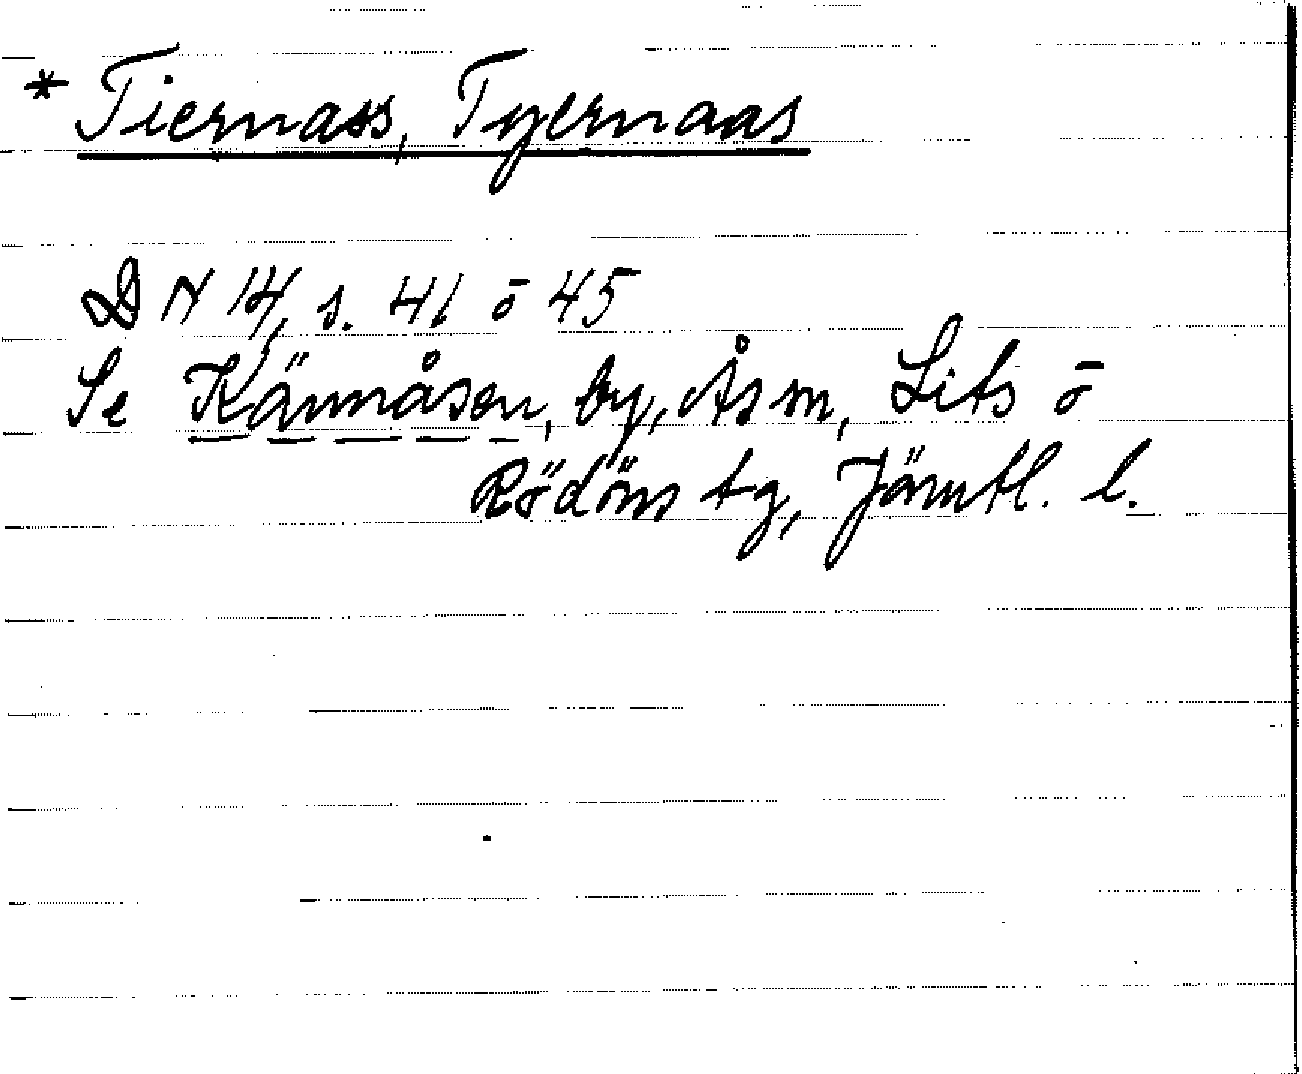 * Tiernass, Tyernaas
DN 14, s. 41 ō 45
Se Kännåsen, by, Ås sn, Lits ō
Rödöns tg, Jämtl. l.